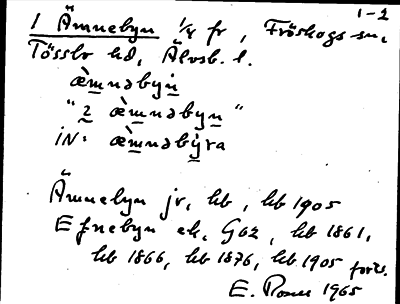 1-2
1 Ämnebyn 1/4 fr, Fröskogs sn,
Tössbo hd, Älvsb. l.
æ̀mnəbyn
"2 æ̀mnəbyn"
IN: æ̀mnəbýra
Ämnebyn jr, kb, kb 1905
Efnebyn ek, G62, kb 1861,
kb 1866, kb 1876, kb 1905 forts.
E. 1965